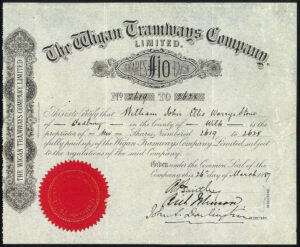 The Wigan Tramways Company,
LIMITED.
£10
No 2619 TO 2628
This is to Certify that William John Ellis
of in the County of Wilts is the
proprietor of Ten Shares Numbered 2619 to 2628
fully paid up, of the Wigan Tramways Company, Limited, subject
to the regulations of the said Company.
Given under the Common Seal of the
Company this 26th day of March 1887
SECRETARY.
THE WIGAN TRAMWAYS COMPANY, LIMITED